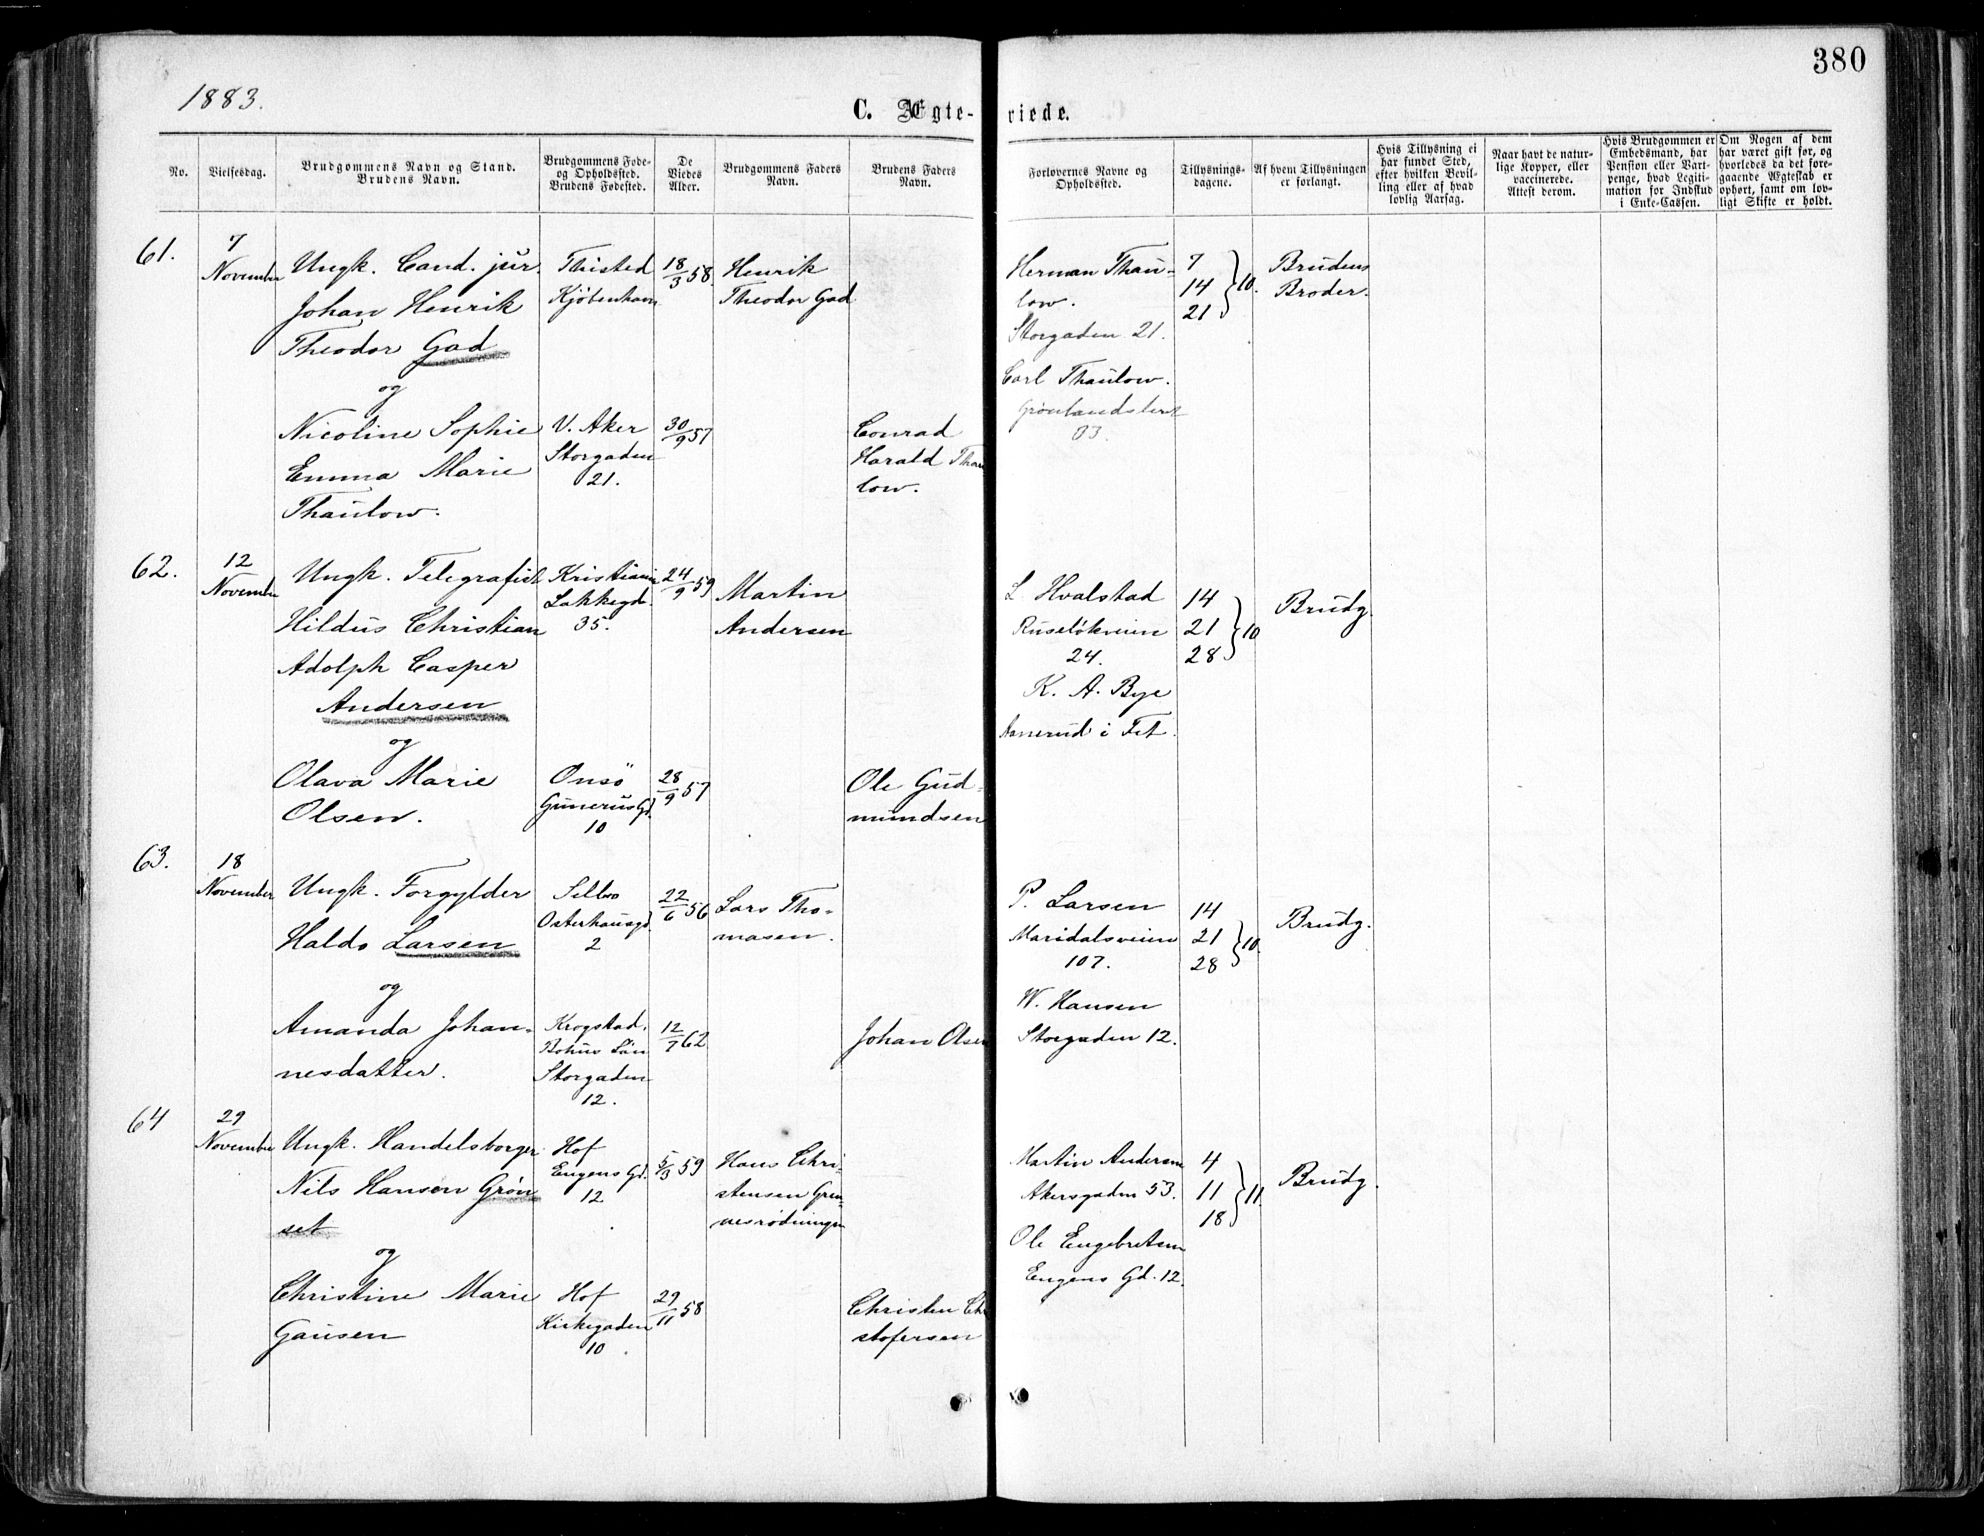 380
1883.
C. Ægte-
viede.
No.
Vielsesdag.
Brudgommens Navn og Stand.
Brudens Navn.
Brudgommens Føde-
og Opholdssted.
Brudens Fødested.
De
Viedes
Alder.
Brudgommens Faders
Navn.
Brudens Faders
Navn.
Forlovernes Navne og
Opholdssted.
Tillysnings-
dagene.
Af hvem Tillysningen
er forlangt.
Hvis Tillysning ei
har fundet Sted,
efter hvilken Bevil-
ling eller af hvad
lovlig Aarsag.
Naar havt de natur-
lige Kopper, eller
vaccinerede.
Attest derom.
Hvis Brudgommen er
Embedsmand, har
Pension eller Vart-
penge, hvad Legiti-
mation for Indskud
i Enke-Cassen.
Om Nogen af dem
har været gift før, og
hvorledes da det fore-
gaaende Ægteskab er
ophørt, samt om lov-
ligt Skifte er holdt.
61.
7
November
Ungk. Cand. jur.
Johan Henrik
Theodor Gad
og
Nicoline Sophie
Emma Marie
Thaulow.
Thisted
Kjöbenhavn
V. Aker
Storgaden
21.
18/3 58
30/9 57
Henrik
Theodor Gad
Conrad
Harald Thau-
low.
Herman Thau-
low.
Storgaden 21.
Carl Thaulow.
Grønlandsleret
7
14
21
10.
Brudens
Broder.
62.
12
November
Ungk. Telegrafist
Hildus Christian
Adolph Casper
Andersen
og
Olava Marie
Olsen.
Kristiania
Lakkegd.
35.
Onsö
Gunerius Gd.
10
24/9 59
28/9 57
Martin
Andersen
Ole Gud-
mundsen
L Hvalstad
Ruselökveien
24.
K. A. Bye
i Fet.
14
21
28
10
Brudg.
63.
18
November
Ungk. Forgylder
Haldo Larsen
og
Amanda Johan-
nesdatter.
Selbo
Osterhausgd.
2
Krogstad,
Bohus Län
Storgaden
12.
22/6 56
12/7 62
Lars Tho-
masen.
Johan Olsen
P. Larsen
Maridalsveien
107.
W. Hansen
Storgaden 12.
14
21
28
10.
Brudg.
64
29
November
Ungk. Handelsborger
Nils Hansen Grøn
set
og
Christine Marie
Gausen
Hof
Eugens Gd.
12
Hof
Kirkegaden
10
5/3 59
29/11 58
Hans Chri-
stensen Grøn-
Christen Chri
stofersen
Martin Andersen
Akersgaden 53.
Ole Engebretsen
Eugens Gd. 12.
4
11
18
11.
Brudg.